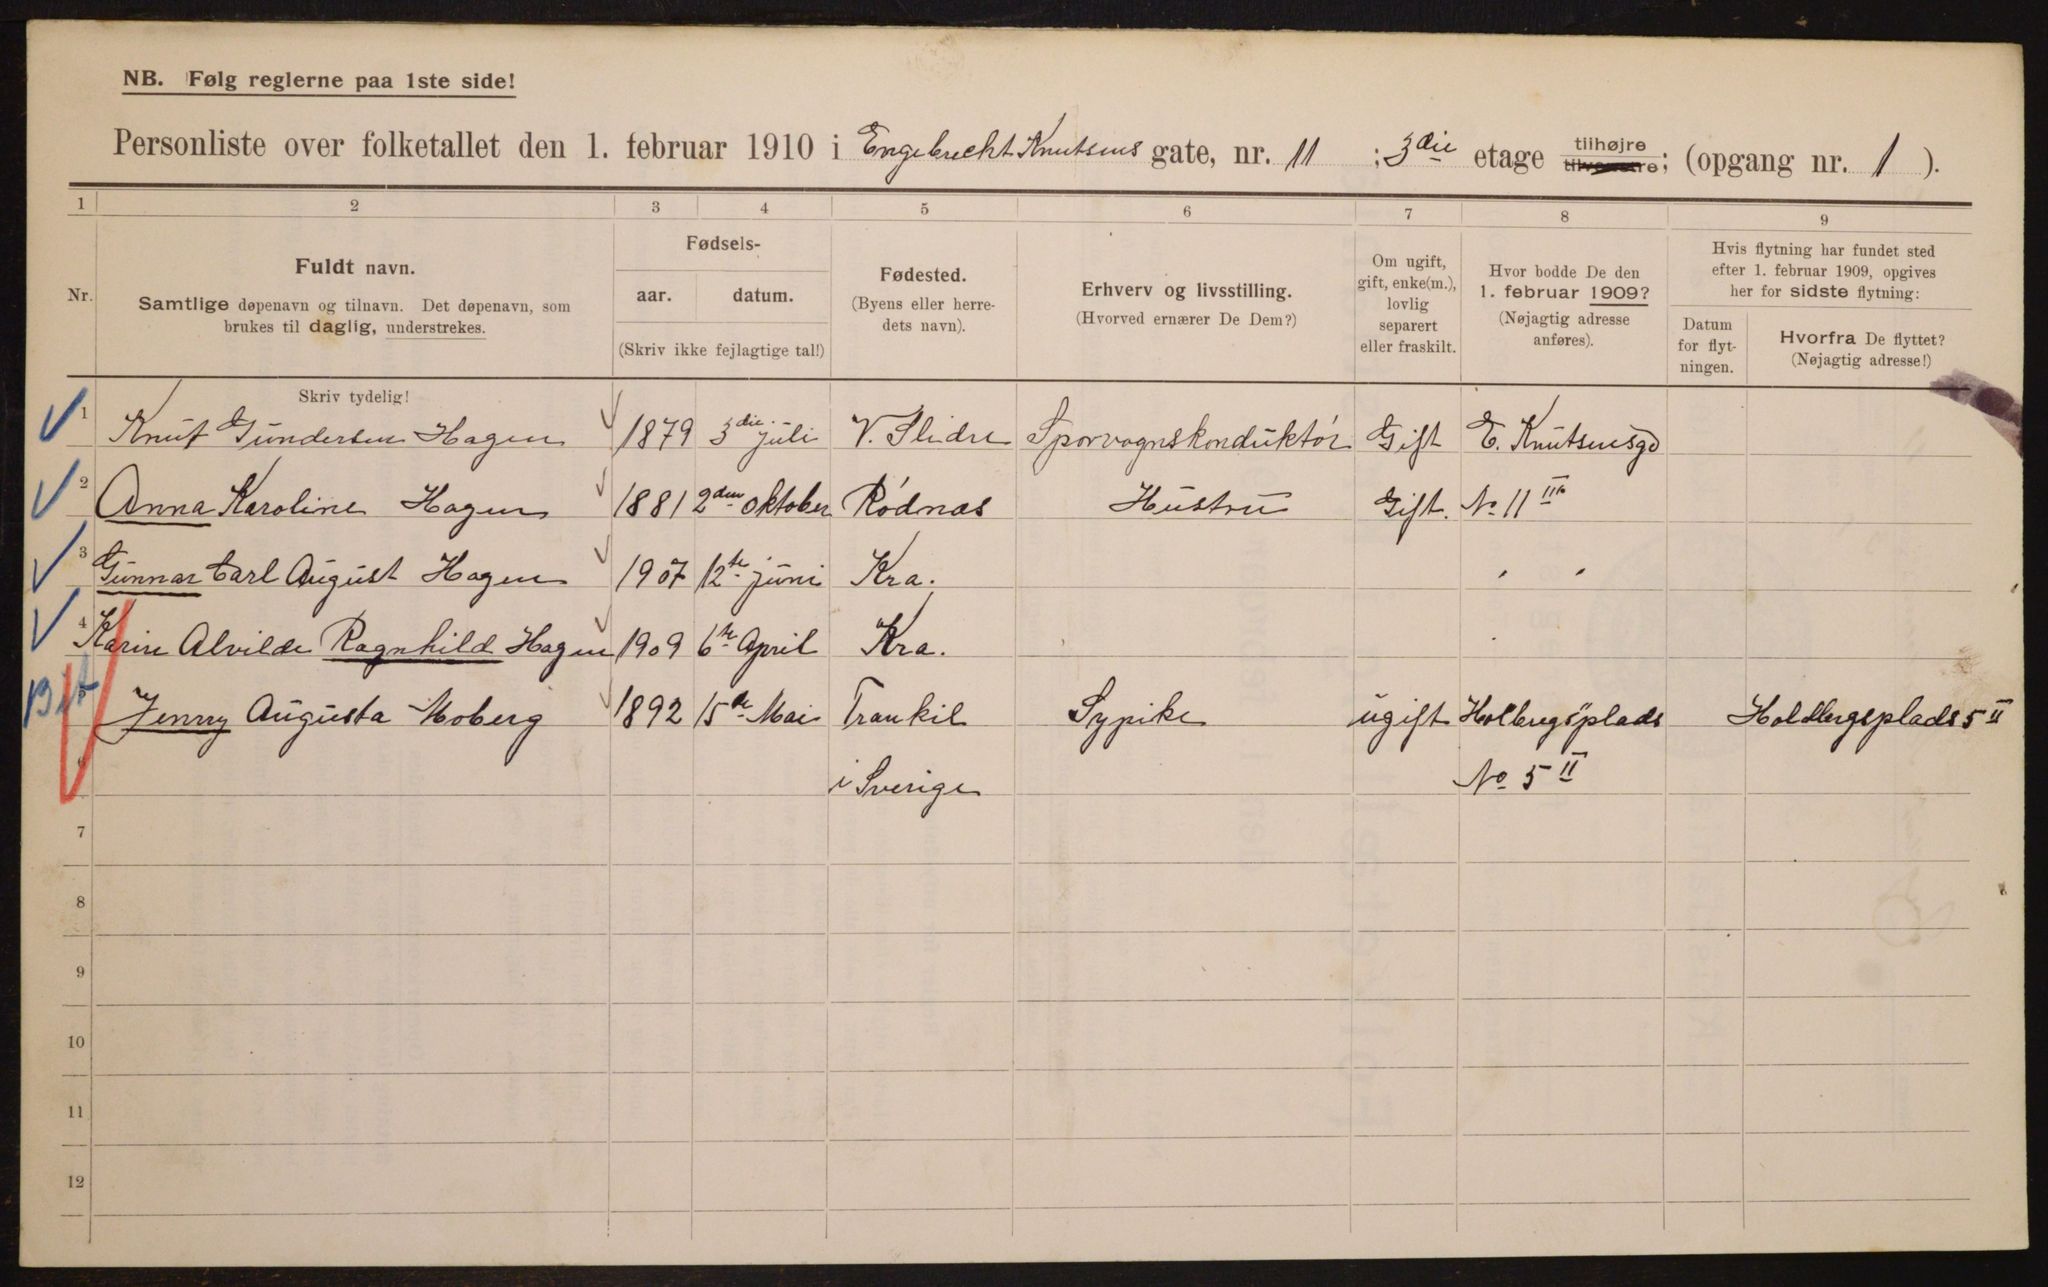 NB. Følg reglerne paa 1ste side!
Personliste over folketallet den 1. februar 1910 i Engebreckt Knutsens gate, nr. 11 ; 3die etage tilhøjre tilvenstre; (opgang nr. 1 ).
1 2 3 4 5 6 7 8 9
Nr.
Fuldt navn.
Samtlige døpenavn og tilnavn. Det døpenavn, som
brukes til daglig, understrekes.
Fødsels-
aar. datum.
(Skriv ikke fejlagtige tal!)
Fødested.
(Byens eller herre-
dets navn).
Erhverv og livsstilling.
(Hvorved ernærer De Dem?)
Om ugift,
gift, enke(m.),
lovlig
separert
eller fraskilt.
Hvor bodde De den
1. februar 1909?
(Nøjagtig adresse
anføres).
Hvis flytning har fundet sted
efter 1. februar 1909, opgives
her for sidste flytning:
Datum
for flyt-
ningen.
Hvorfra De flyttet?
(Nøjagtig adresse!)
Skriv tydelig!
1 Knut Gundersen Hagen 1879 3die juli V. Slidre Sporvognskonduktór Gift E. Knutsensgd
2 Anna Karoline Hagen 1881 2den oktober Ródnæs Hustru Gift. No 11 III
3 Gunnar Carl August Hagen 1907 12te juni Kra. " "
4 Karin Alvilde Ragnhild Hagen 1909 6te April Kra. "
5 Jenny Augusta Moberg 1892 15de Mai Trankil Sypike ugift Holbergsplads Holdbergsplads 5 II
6 i Sverige No 5 II
7
8
9
10
11
12